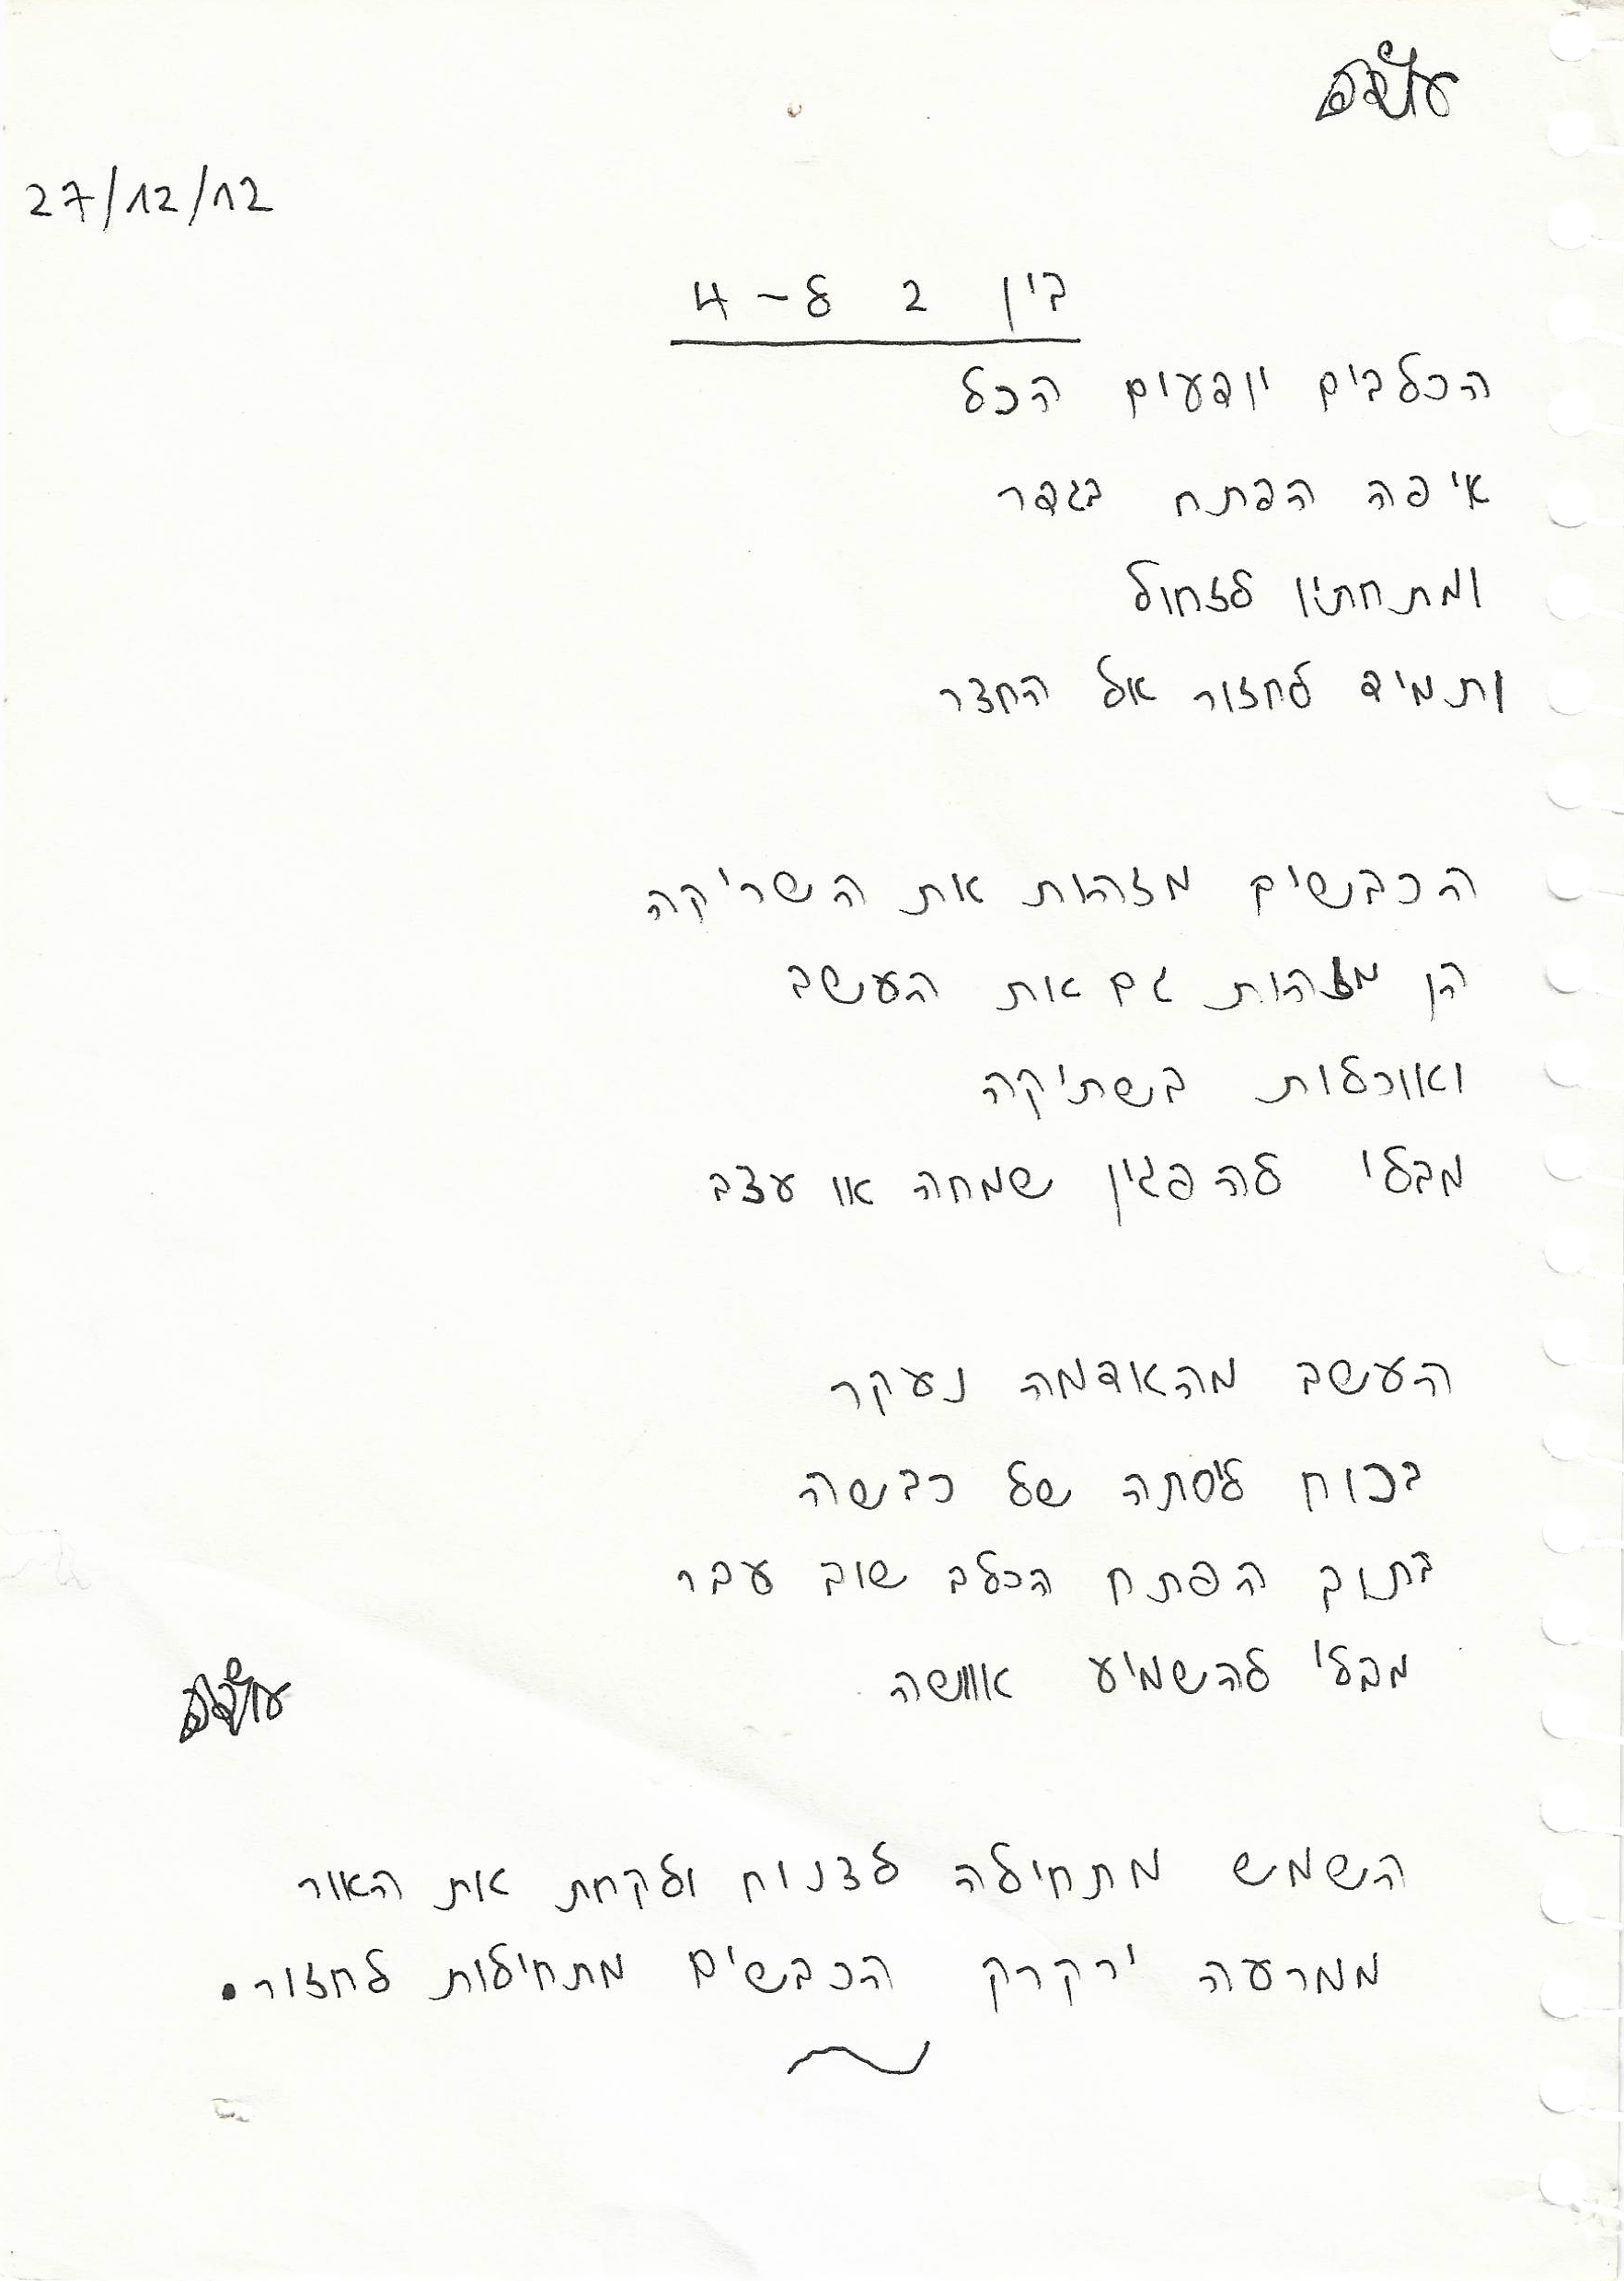 27/12/12
בין 2 ל-4
הכלבים יודעים הכל
איפה הפתח בגדר
ומתחתיו לזחול
ותמיד לחזור אל החצר
הכבשים מזהות את השריקה
הן מזהות גם את העשב
ואוכלות בשתיקה
מבלי להפגין שמחה או עצב
העשב מהאדמה נעקר
בכוח לסתה של כבשה
בתוך הפתח הכלב שוב עבר
מבלי להשמיע אוושה
השמש מתחילה לצנוח ולקחת את האור
ממרעה ירקרק הכבשים מתחילות לחזור.